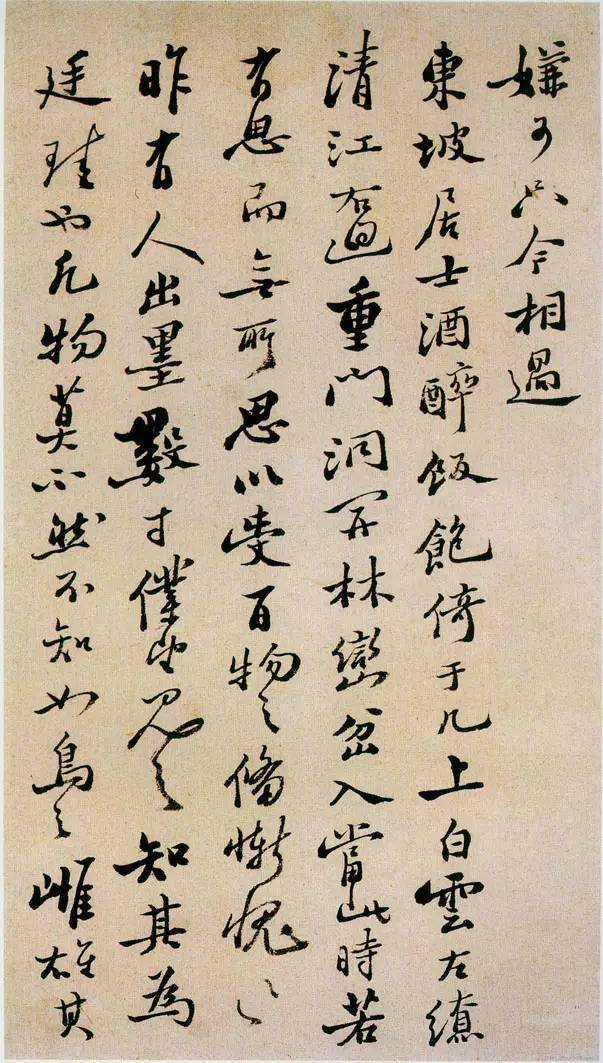 嫌可只今相過
東坡居士酒醉飯飽倚于几上白雲左繚
清江右迴重門洞開林巒坌入當此時若
有思而無所思以受百物之備慚愧〻
昨有人出墨數寸僕望見之知其為
廷珪也凡物莫不然不知如烏之雌雄其